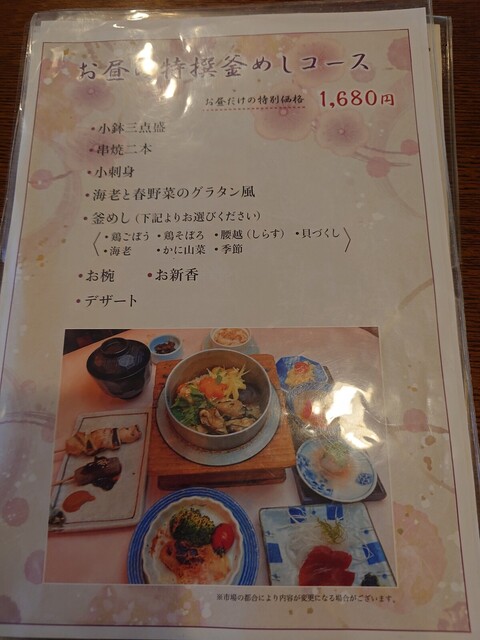 お昼の特撰釜めしコース
お昼だけの特別価格 1,680円
・小鉢三点盛
・串焼二本
・小刺身
・海老と春野菜のグラタン風
・釜めし(下記よりお選びください)
〈・鶏ごぼう ・鶏そぼろ ・腰越(しらす) ・貝づくし
・海老 ・かに山菜 ・季節〉
・お椀 ・お新香
・デザート
※市場の都合により内容が変更になる場合がございます。